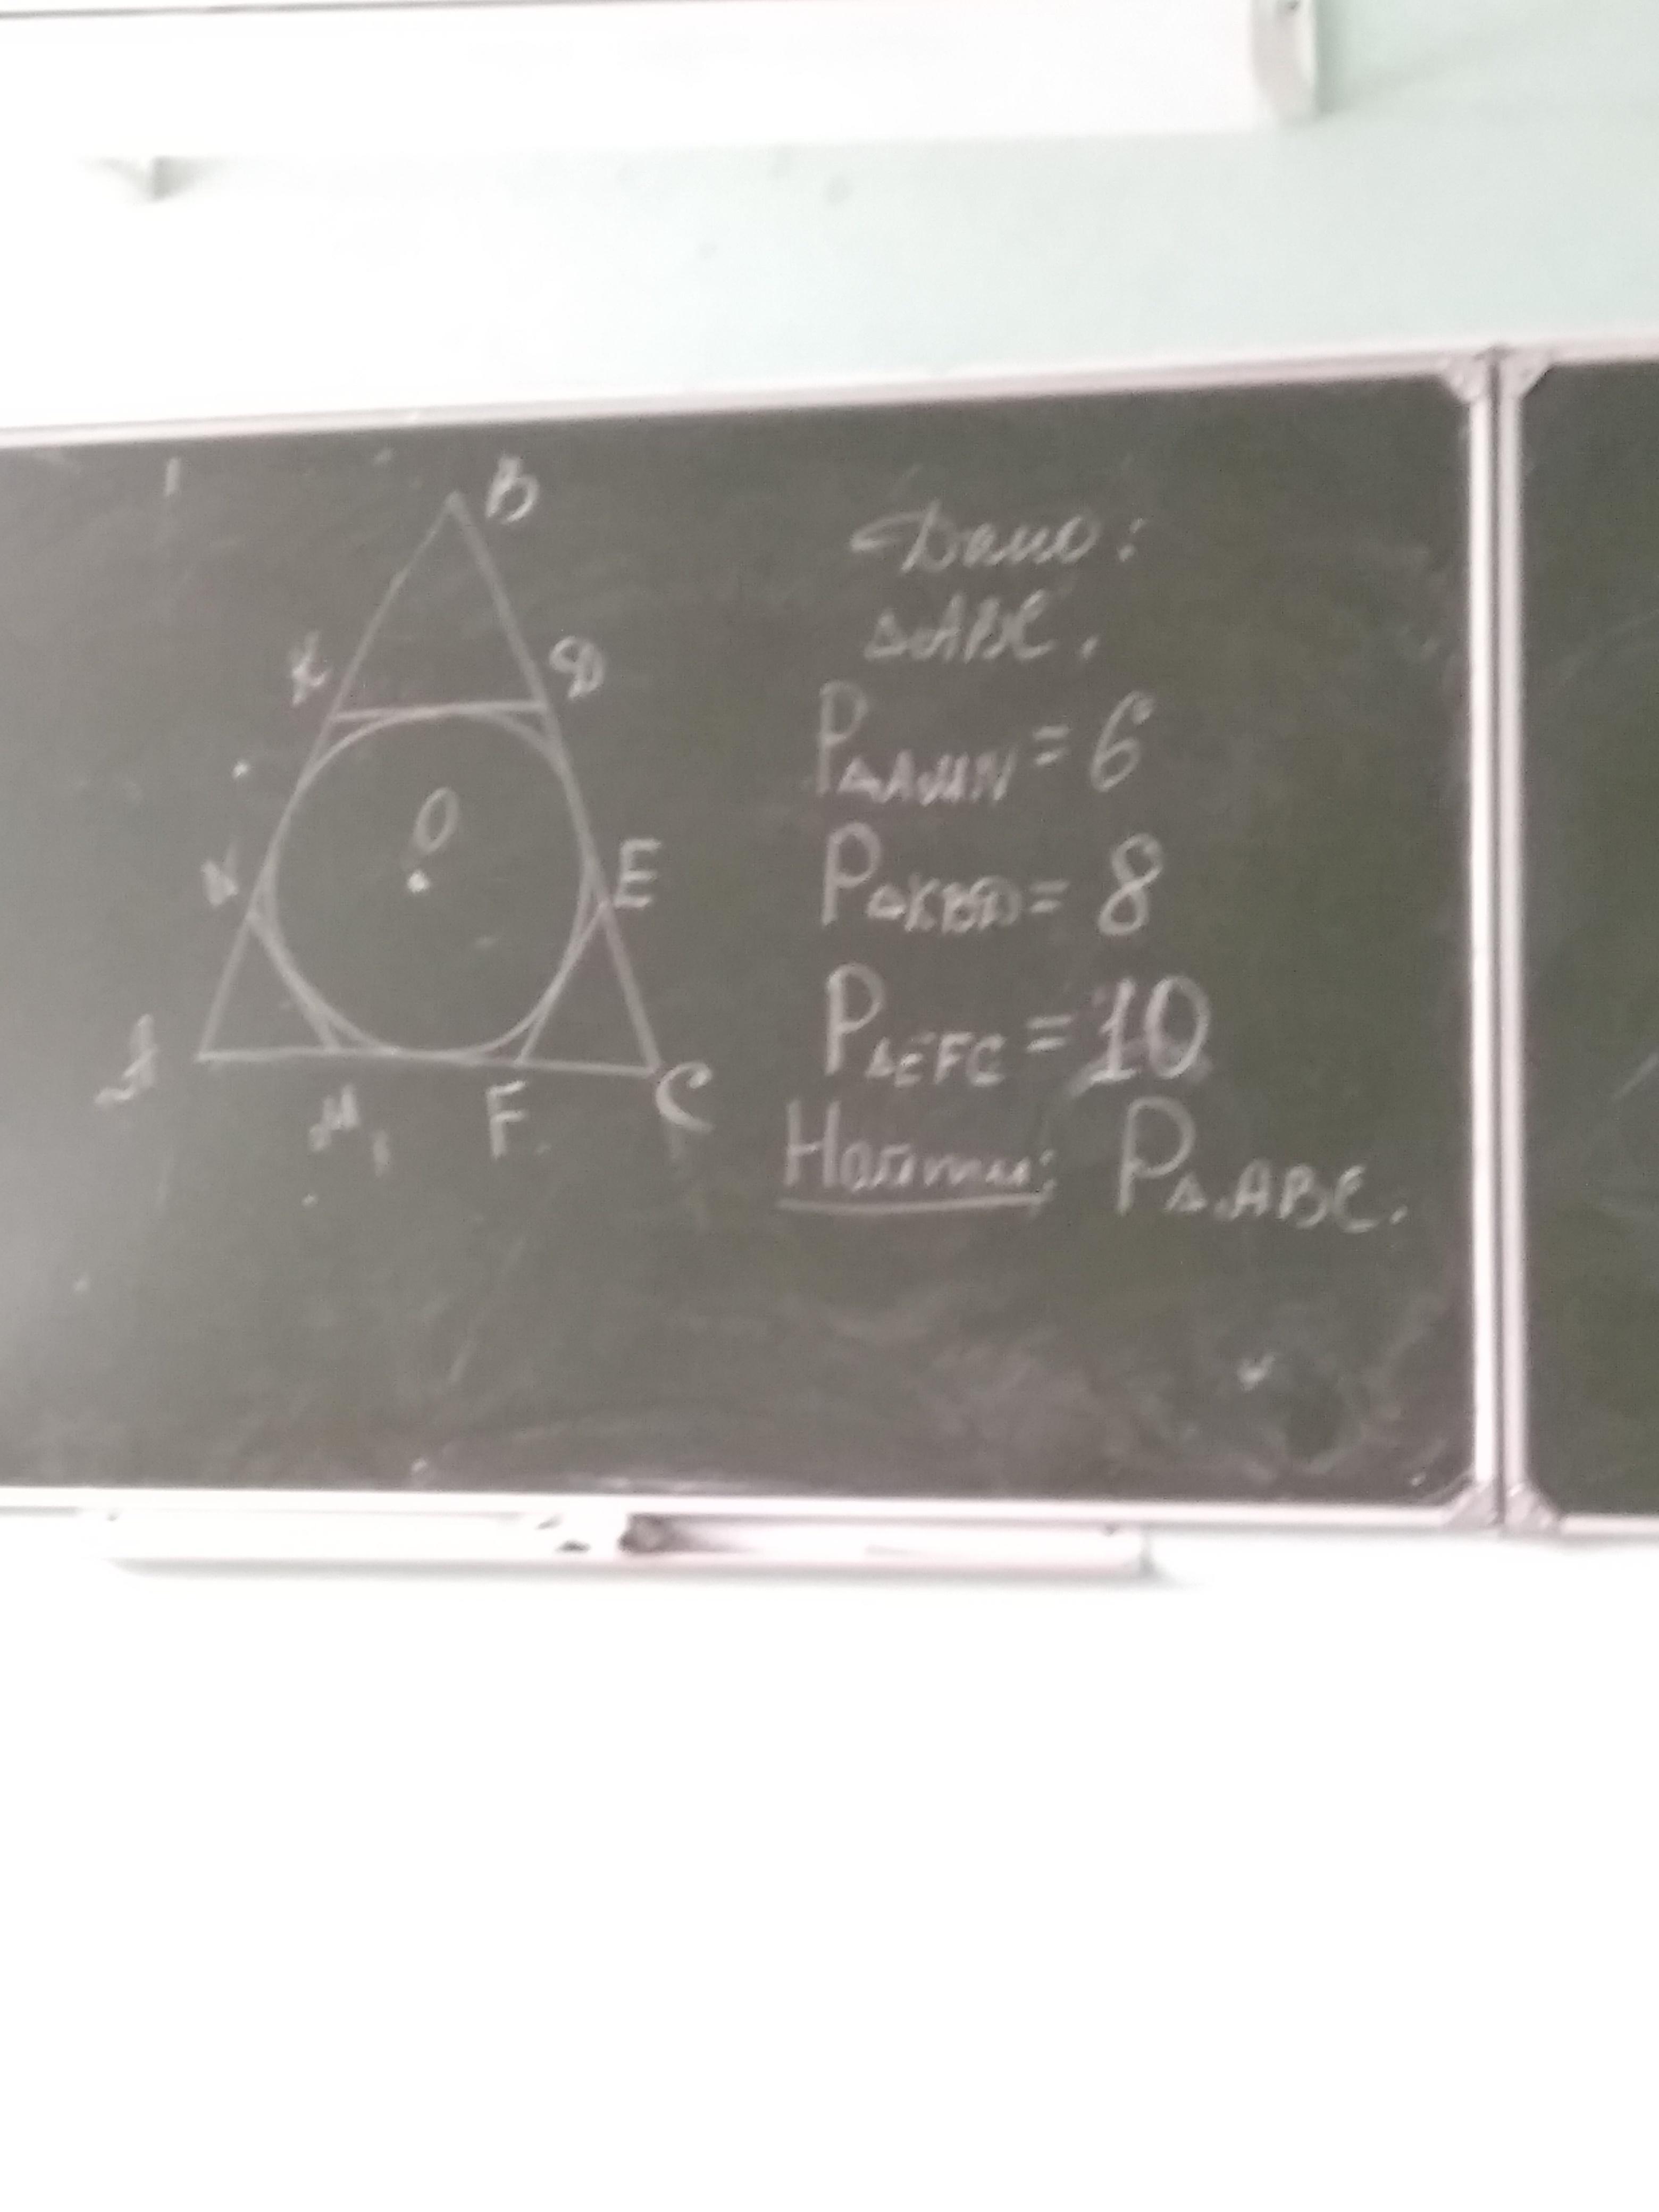 B
K D
O
N E
A M F C
Дано:
△ABC.
P△AMN = 6
P△KBD = 8
P△EFC = 10
Найти: P△ABC.